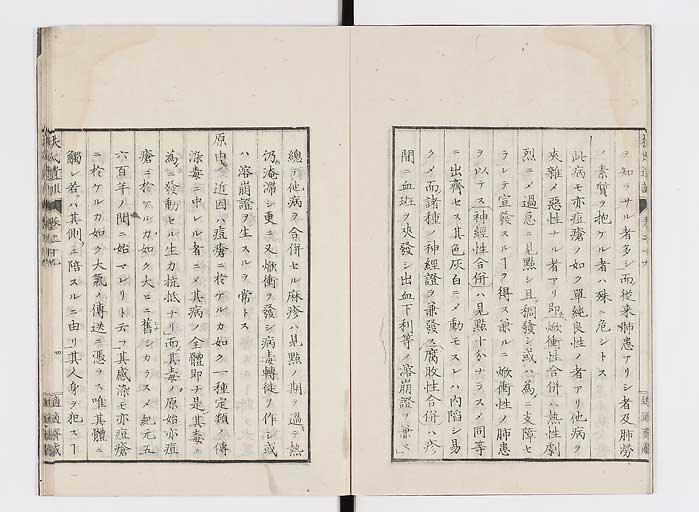 ヲ知ラサル者多シ而從来肺患アリシ者及肺勞
ノ素質ヲ抱ケル者ハ殊ニ危シトス
此病モ亦痘瘡ノ如ク單純良性ノ者アリ他病ヲ
夾雜メ惡性ナル者アリ即焮衝性合併ハ熱性劇
烈ニメ過急ニ見點シ且稠發シ或ハ為ニ支障セ
ラレテ宣發スルヿヲ得ス兼ルニ焮衝性ノ肺患
ヲ以テス神經性合併ハ見點十分ナラスメ同等
ニ出齊セス其色灰白ニメ動モスレハ内陷シ易
クメ而諸種ノ神經證ヲ兼發ス腐敗性合併ハ疹
間ニ血斑ヲ夾發シ出血下利等ノ溶崩證ヲ兼ス
總テ他病ヲ合併セル麻疹ハ見點ノ期ヲ過テ熱
仍淹滞シ更ニ又焮衝ヲ發シ病毒轉徙ヲ作シ或
ハ溶崩證ヲ生スルヲ常トス
原由 近因ハ痘瘡ニ於ケルカ如ク一種定類ノ傳
染毒ニ中レル者ニメ其病ノ全體即チ是其毒ノ
為ニ發動セル生力抗抵ナリ而其毒ノ原始亦痘
瘡ニ於ケルカ如ク大ニ舊シカラスメ紀元五
六百年ノ間ニ始マレリト云フ其感染モ亦痘瘡
ニ於ケルカ如ク大氣ノ傳送ニ憑ラス唯其體ニ
觸レ若ハ其側ニ陪スルニ由リ其人身ヲ犯スヿ